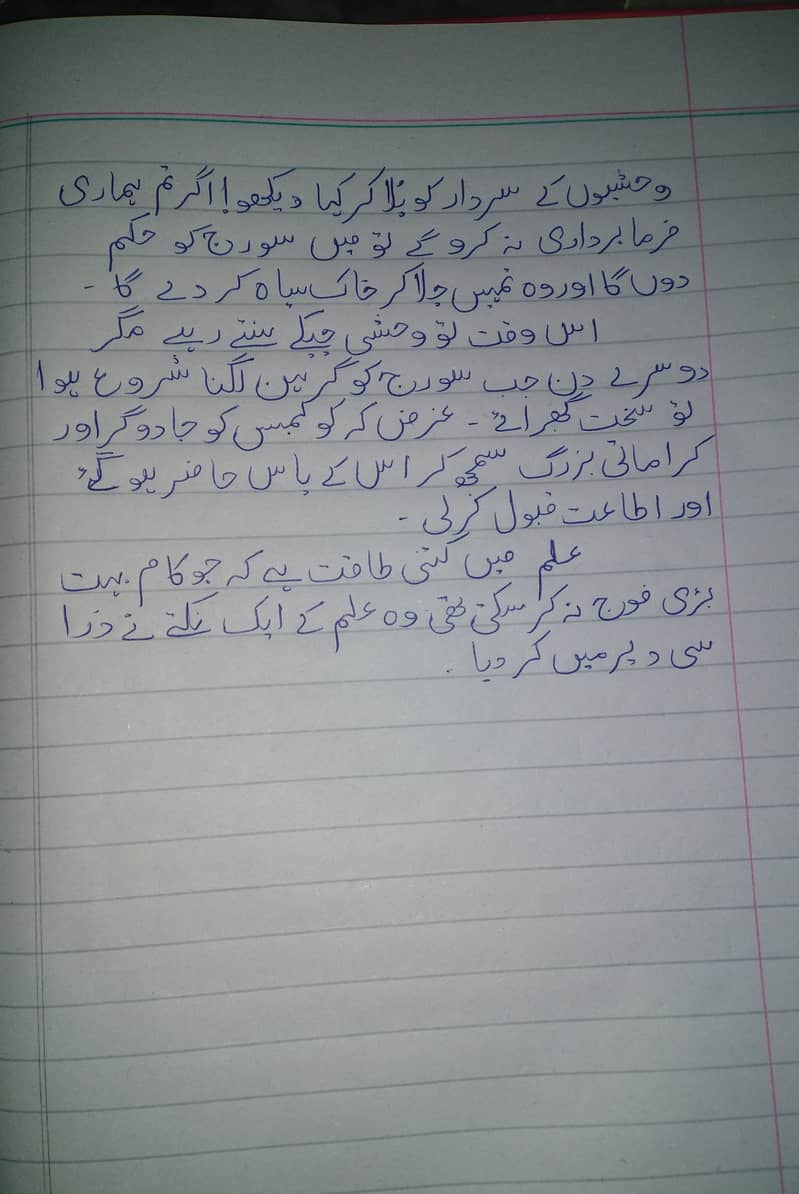 وحشیوں کے سردار کو بُلا کر کہا دیکھو! اگر تم ہماری
فرمابرداری نہ کرو گے تو میں سورج کو حکم
دوں گا اور وہ تمہیں جلا کر خاک سیاہ کر دے گا -
اس وقت تو وحشی چپکے سنتے رہے مگر
دوسرے دن جب سورج کو گرہن لگنا شروع ہوا
تو سخت گھبرائے - غرض کہ کولمبس کو جادوگر اور
کراماتی بزرگ سمجھ کر اس کے پاس حاضر ہو گئے
اور اطاعت قبول کر لی -
علم میں کتنی طاقت ہے کہ جو کام بہت
بڑی فوج نہ کر سکتی تھی وہ علم کے ایک نکتے نے ذرا
سی دیر میں کر دیا .